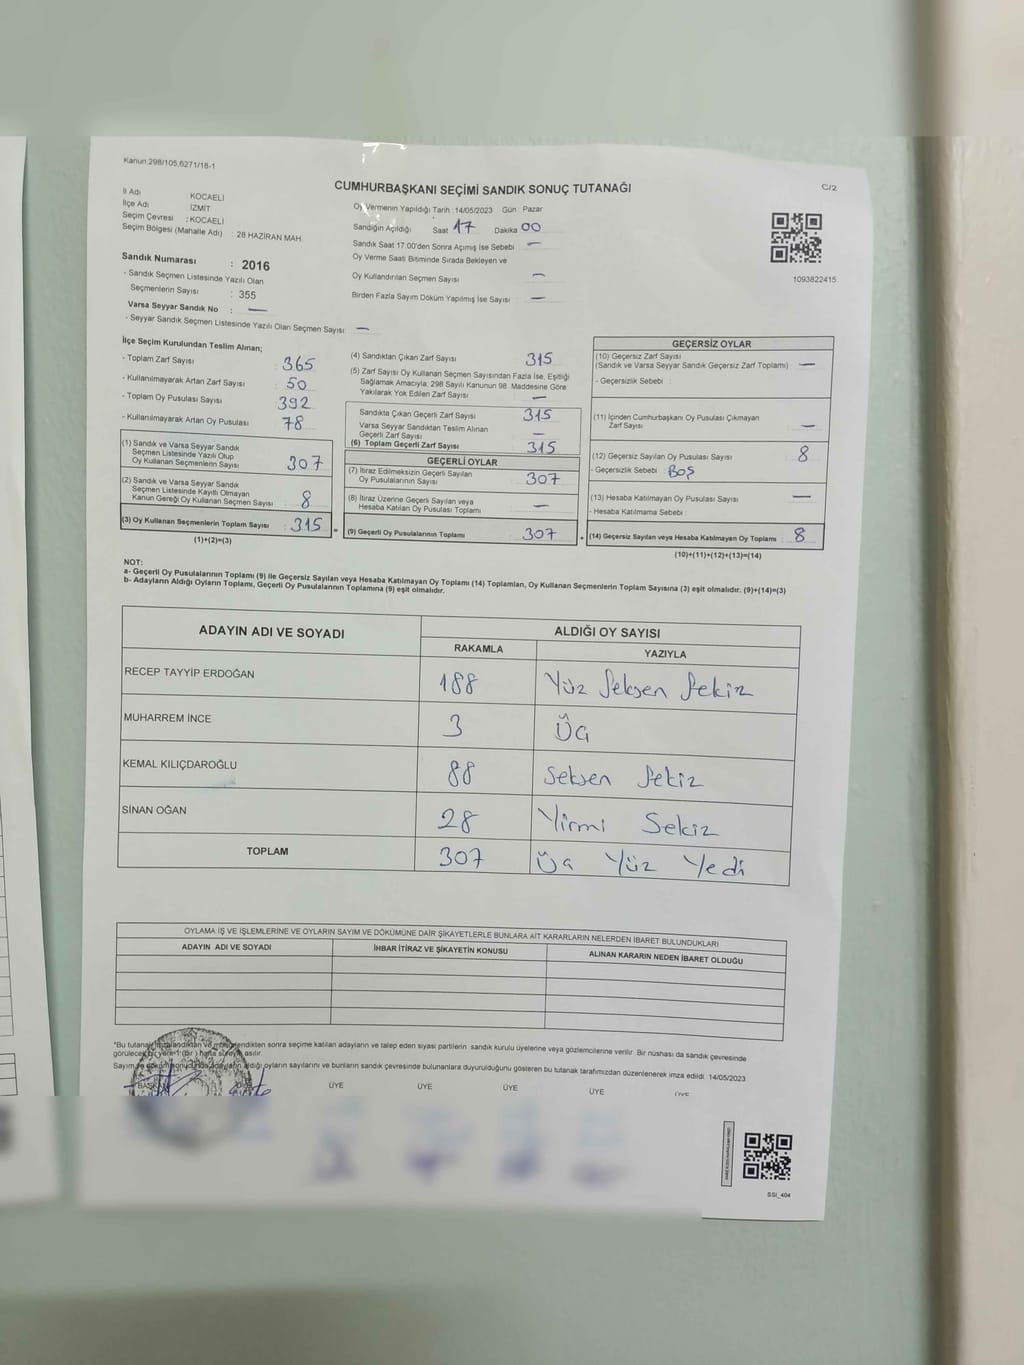 Kanun:298/105.6271/18-1
CUMHURBAŞKANI SEÇİMİ SANDIK SONUÇ TUTANAĞI
C/2
İl Adı : KOCAELİ
İlçe Adı : İZMİT
Seçim Çevresi : KOCAELİ
Seçim Bölgesi (Mahalle Adı) : 28 HAZİRAN MAH.
Oy Vermenin Yapıldığı Tarih :14/05/2023 Gün : Pazar
Sandığın Açıldığı Saat 17 Dakika 00
Sandık Saat 17.00'den Sonra Açımış İse Sebebi : —
Oy Verme Saati Bitiminde Sırada Bekleyen ve
Oy Kullandırılan Seçmen Sayısı : —
Birden Fazla Sayım Döküm Yapılmış İse Sayısı : —
1093822415
Sandık Numarası : 2016
- Sandık Seçmen Listesinde Yazılı Olan
Seçmenlerin Sayısı : 355
Varsa Seyyar Sandık No : —
- Seyyar Sandık Seçmen Listesinde Yazılı Olan Seçmen Sayısı : —
İlçe Seçim Kurulundan Teslim Alınan;
- Toplam Zarf Sayısı : 365
- Kullanılmayarak Artan Zarf Sayısı : 50
- Toplam Oy Pusulası Sayısı : 392
- Kullanılmayarak Artan Oy Pusulası : 78
(1) Sandık ve Varsa Seyyar Sandık
Seçmen Listesinde Yazılı Olup
Oy Kullanan Seçmenlerin Sayısı : 307
(2) Sandık ve Varsa Seyyar Sandık
Seçmen Listesinde Kayıtlı Olmayan
Kanun Gereği Oy Kullanan Seçmen Sayısı : 8
(3) Oy Kullanan Seçmenlerin Toplam Sayısı : 315
(1)+(2)=(3)
(4) Sandıktan Çıkan Zarf Sayısı : 315
(5) Zarf Sayısı Oy Kullanan Seçmen Sayısından Fazla İse, Eşitliği
Sağlamak Amacıyla; 298 Sayılı Kanunun 98. Maddesine Göre
Yakılarak Yok Edilen Zarf Sayısı : —
Sandıkta Çıkan Geçerli Zarf Sayısı : 315
Varsa Seyyar Sandıktan Teslim Alınan
Geçerli Zarf Sayısı : —
(6) Toplam Geçerli Zarf Sayısı : 315
GEÇERLİ OYLAR
(7) İtiraz Edilmeksizin Geçerli Sayılan
Oy Pusulalarının Sayısı : 307
(8) İtiraz Üzerine Geçerli Sayılan veya
Hesaba Katılan Oy Pusulası Toplamı : —
= (9) Geçerli Oy Pusulalarının Toplamı : 307
GEÇERSİZ OYLAR
(10) Geçersiz Zarf Sayısı
(Sandık ve Varsa Seyyar Sandık Geçersiz Zarf Toplamı) : —
- Geçersizlik Sebebi :
(11) İçinden Cumhurbaşkanı Oy Pusulası Çıkmayan
Zarf Sayısı : —
(12) Geçersiz Sayılan Oy Pusulası Sayısı : 8
- Geçersizlik Sebebi : BOŞ
(13) Hesaba Katılmayan Oy Pusulası Sayısı : —
- Hesaba Katılmama Sebebi :
+ (14) Geçersiz Sayılan veya Hesaba Katılmayan Oy Toplamı : 8
(10)+(11)+(12)+(13)=(14)
NOT:
a- Geçerli Oy Pusulalarının Toplamı (9) ile Geçersiz Sayılan veya Hesaba Katılmayan Oy Toplamı (14) Toplamları, Oy Kullanan Seçmenlerin Toplam Sayısına (3) eşit olmalıdır. (9)+(14)=(3)
b- Adayların Aldığı Oyların Toplamı, Geçerli Oy Pusulalarının Toplamına (9) eşit olmalıdır.
ADAYIN ADI VE SOYADI ALDIĞI OY SAYISI
RAKAMLA YAZIYLA
RECEP TAYYİP ERDOĞAN 188 Yüz Seksen Sekiz
MUHARREM İNCE 3 Üç
KEMAL KILIÇDAROĞLU 88 Seksen Sekiz
SİNAN OĞAN 28 Yirmi Sekiz
TOPLAM 307 Üç Yüz Yedi
OYLAMA İŞ VE İŞLEMLERİNE VE OYLARIN SAYIM VE DÖKÜMÜNE DAİR ŞİKAYETLERLE BUNLARA AİT KARARLARIN NELERDEN İBARET BULUNDUKLARI
ADAYIN ADI VE SOYADI İHBAR İTİRAZ VE ŞİKAYETİN KONUSU ALINAN KARARIN NEDEN İBARET OLDUĞU
*Bu tutanak sonra seçime katılan adayların ve talep eden siyasi partilerin sandık kurulu üyelerine veya gözlemcilerine verilir. Bir nüshası da sandık çevresinde
görülecek bir yere 1 (bir) hafta süreyle asılır.
Sayım ve döküm sonucunda adayların aldığı oyların sayılarını ve bunların sandık çevresinde bulunanlara duyurulduğunu gösteren bu tutanak tarafımızdan düzenlenerek imza edildi. 14/05/2023
BAŞKAN ÜYE ÜYE ÜYE ÜYE ÜYE
SSI_404